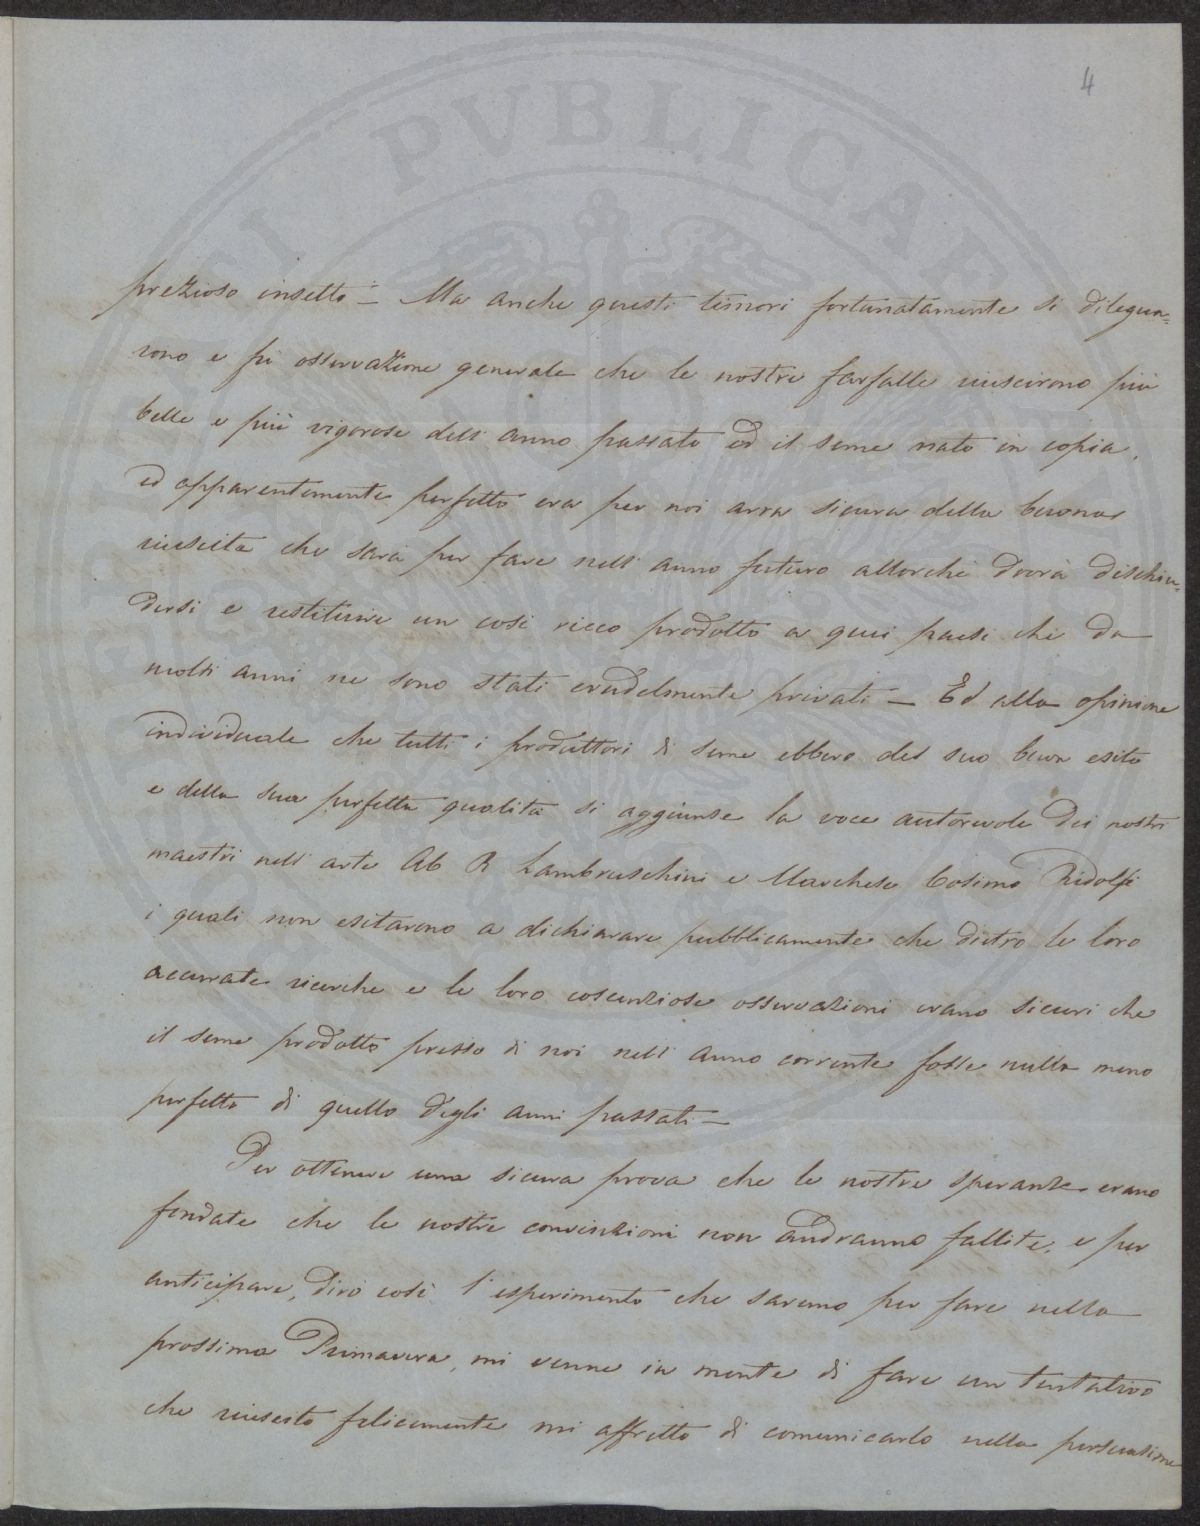 4
prezioso insetto – Ma anche questi timori fortunatamente si dilegua=
rono e fù osservazione generale che le nostre farfalle riuscirono più
belle e più vigorose dell'anno passato ed il seme nato in copia,
ed apparentemente perfetto era per noi arra sicura della buona
riuscita che sarà per fare nell'anno futuro allorchè dovrà dischiu=
dersi e restituire un così ricco prodotto a quei paesi che da
molti anni ne sono stati crudelmente privati – Ed alla opinione
individuale che tutti i produttori di seme ebbero del suo buon esito
e della sua perfetta qualità si aggiunse la voce autorevole dei nostri
maestri nell'arte Ab R Lambruschini e Marchese Cosimo Ridolfi
i quali non esitarono a dichiarare pubblicamente che dietro le loro
accurate ricerche e le loro coscenziose osservazioni erano sicuri che
il seme prodotto presso di noi nell'anno corrente fosse nulla meno
perfetto di quello degli anni passati –
Per ottenere una sicura prova che le nostre speranze erano
fondate che le nostre convinzioni non andranno fallite, e per
anticipare, dirò così l'esperimento che saremo per fare nella
prossima Primavera, mi venne in mente di fare un tentativo
che riuscito felicemente mi affretto di comunicarlo nella persuasione
PUBLICAE